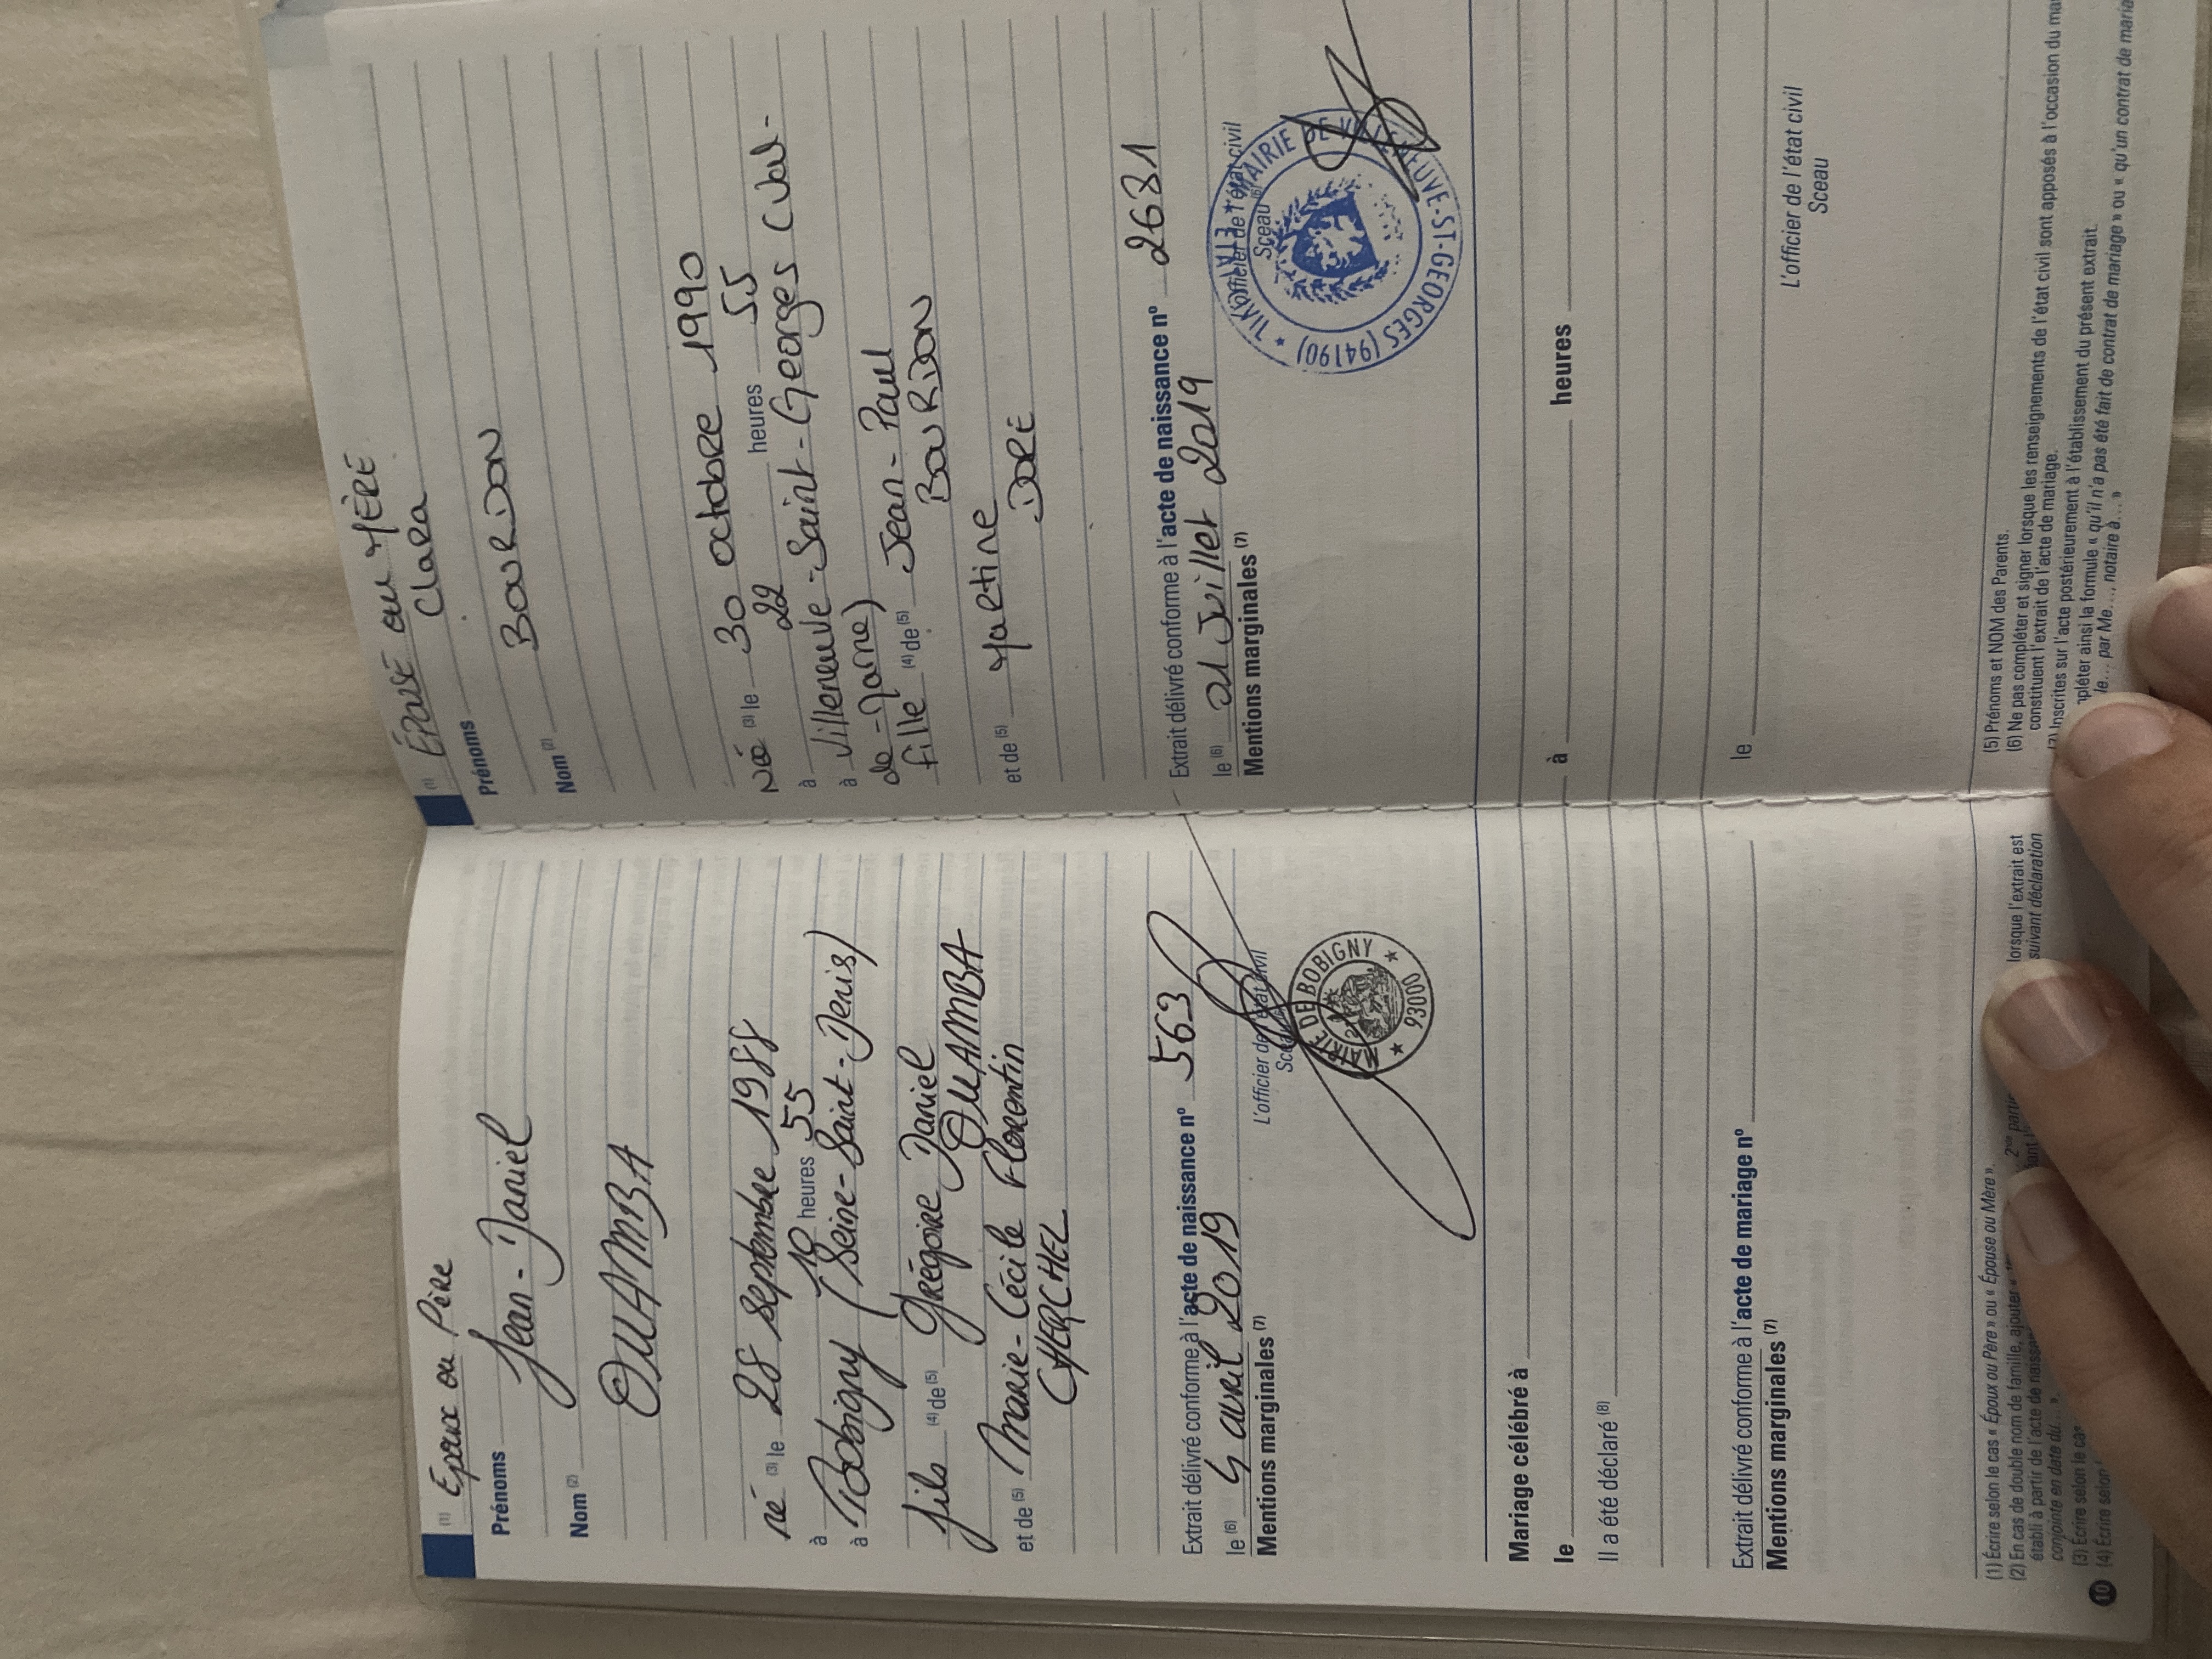 (1) Epoux ou Père
Prénoms Jean-Daniel
Nom (2)
OUAMBA
né (3) le 28 septembre 1988
à 10 heures 55
à Bobigny (Seine-Saint-Denis)
fils (4) de (5) Grégoire Daniel
OUAMBA
et de (5) Marie-Cécile Florentin
CHERCHEL
Extrait délivré conforme à l'acte de naissance n° 563
le (6) 4 avril 2019
L'officier de l'état civil
Sceau
Mentions marginales (7)
MAIRIE DE BOBIGNY
★ 93000 ★
Mariage célébré à
le
Il a été déclaré (8)
Extrait délivré conforme à l'acte de mariage n°
Mentions marginales (7)
(1) Écrire selon le cas « Époux ou Père » ou « Épouse ou Mère ».
(2) En cas de double nom de famille, ajouter « 2nde partie lorsque l'extrait est
établi à partir de l'acte de naissan suivant déclaration
conjointe en date du... ».
(3) Écrire selon le cas
(4) Écrire selon
10
(1) Épouse ou MÈRE
Prénoms Clara
Nom (2) BOURDON
Née (3) le 30 octobre 1990
à 22 heures 55
à Villeneuve-Saint-Georges (Val-
de-Marne)
fille (4) de (5) Jean-Paul
BOURDON
et de (5) Martine
DORÉ
Extrait délivré conforme à l'acte de naissance n° 2631
le (6) 01 Juillet 2019
L'officier de l'état civil
Sceau (6)
Mentions marginales (7)
MAIRIE DE VILLENEUVE-ST-GEORGES (94190) ★ ÉTAT CIVIL ★
à heures
le
L'officier de l'état civil
Sceau
(5) Prénoms et NOM des Parents.
(6) Ne pas compléter et signer lorsque les renseignements de l'état civil sont apposés à l'occasion du
constituent l'extrait de l'acte de mariage.
(7) Inscrites sur l'acte postérieurement à l'établissement du présent extrait.
pléter ainsi la formule « qu'il n'a pas été fait de contrat de mariage » ou « qu'un contrat de
le... par Me..., notaire à... »